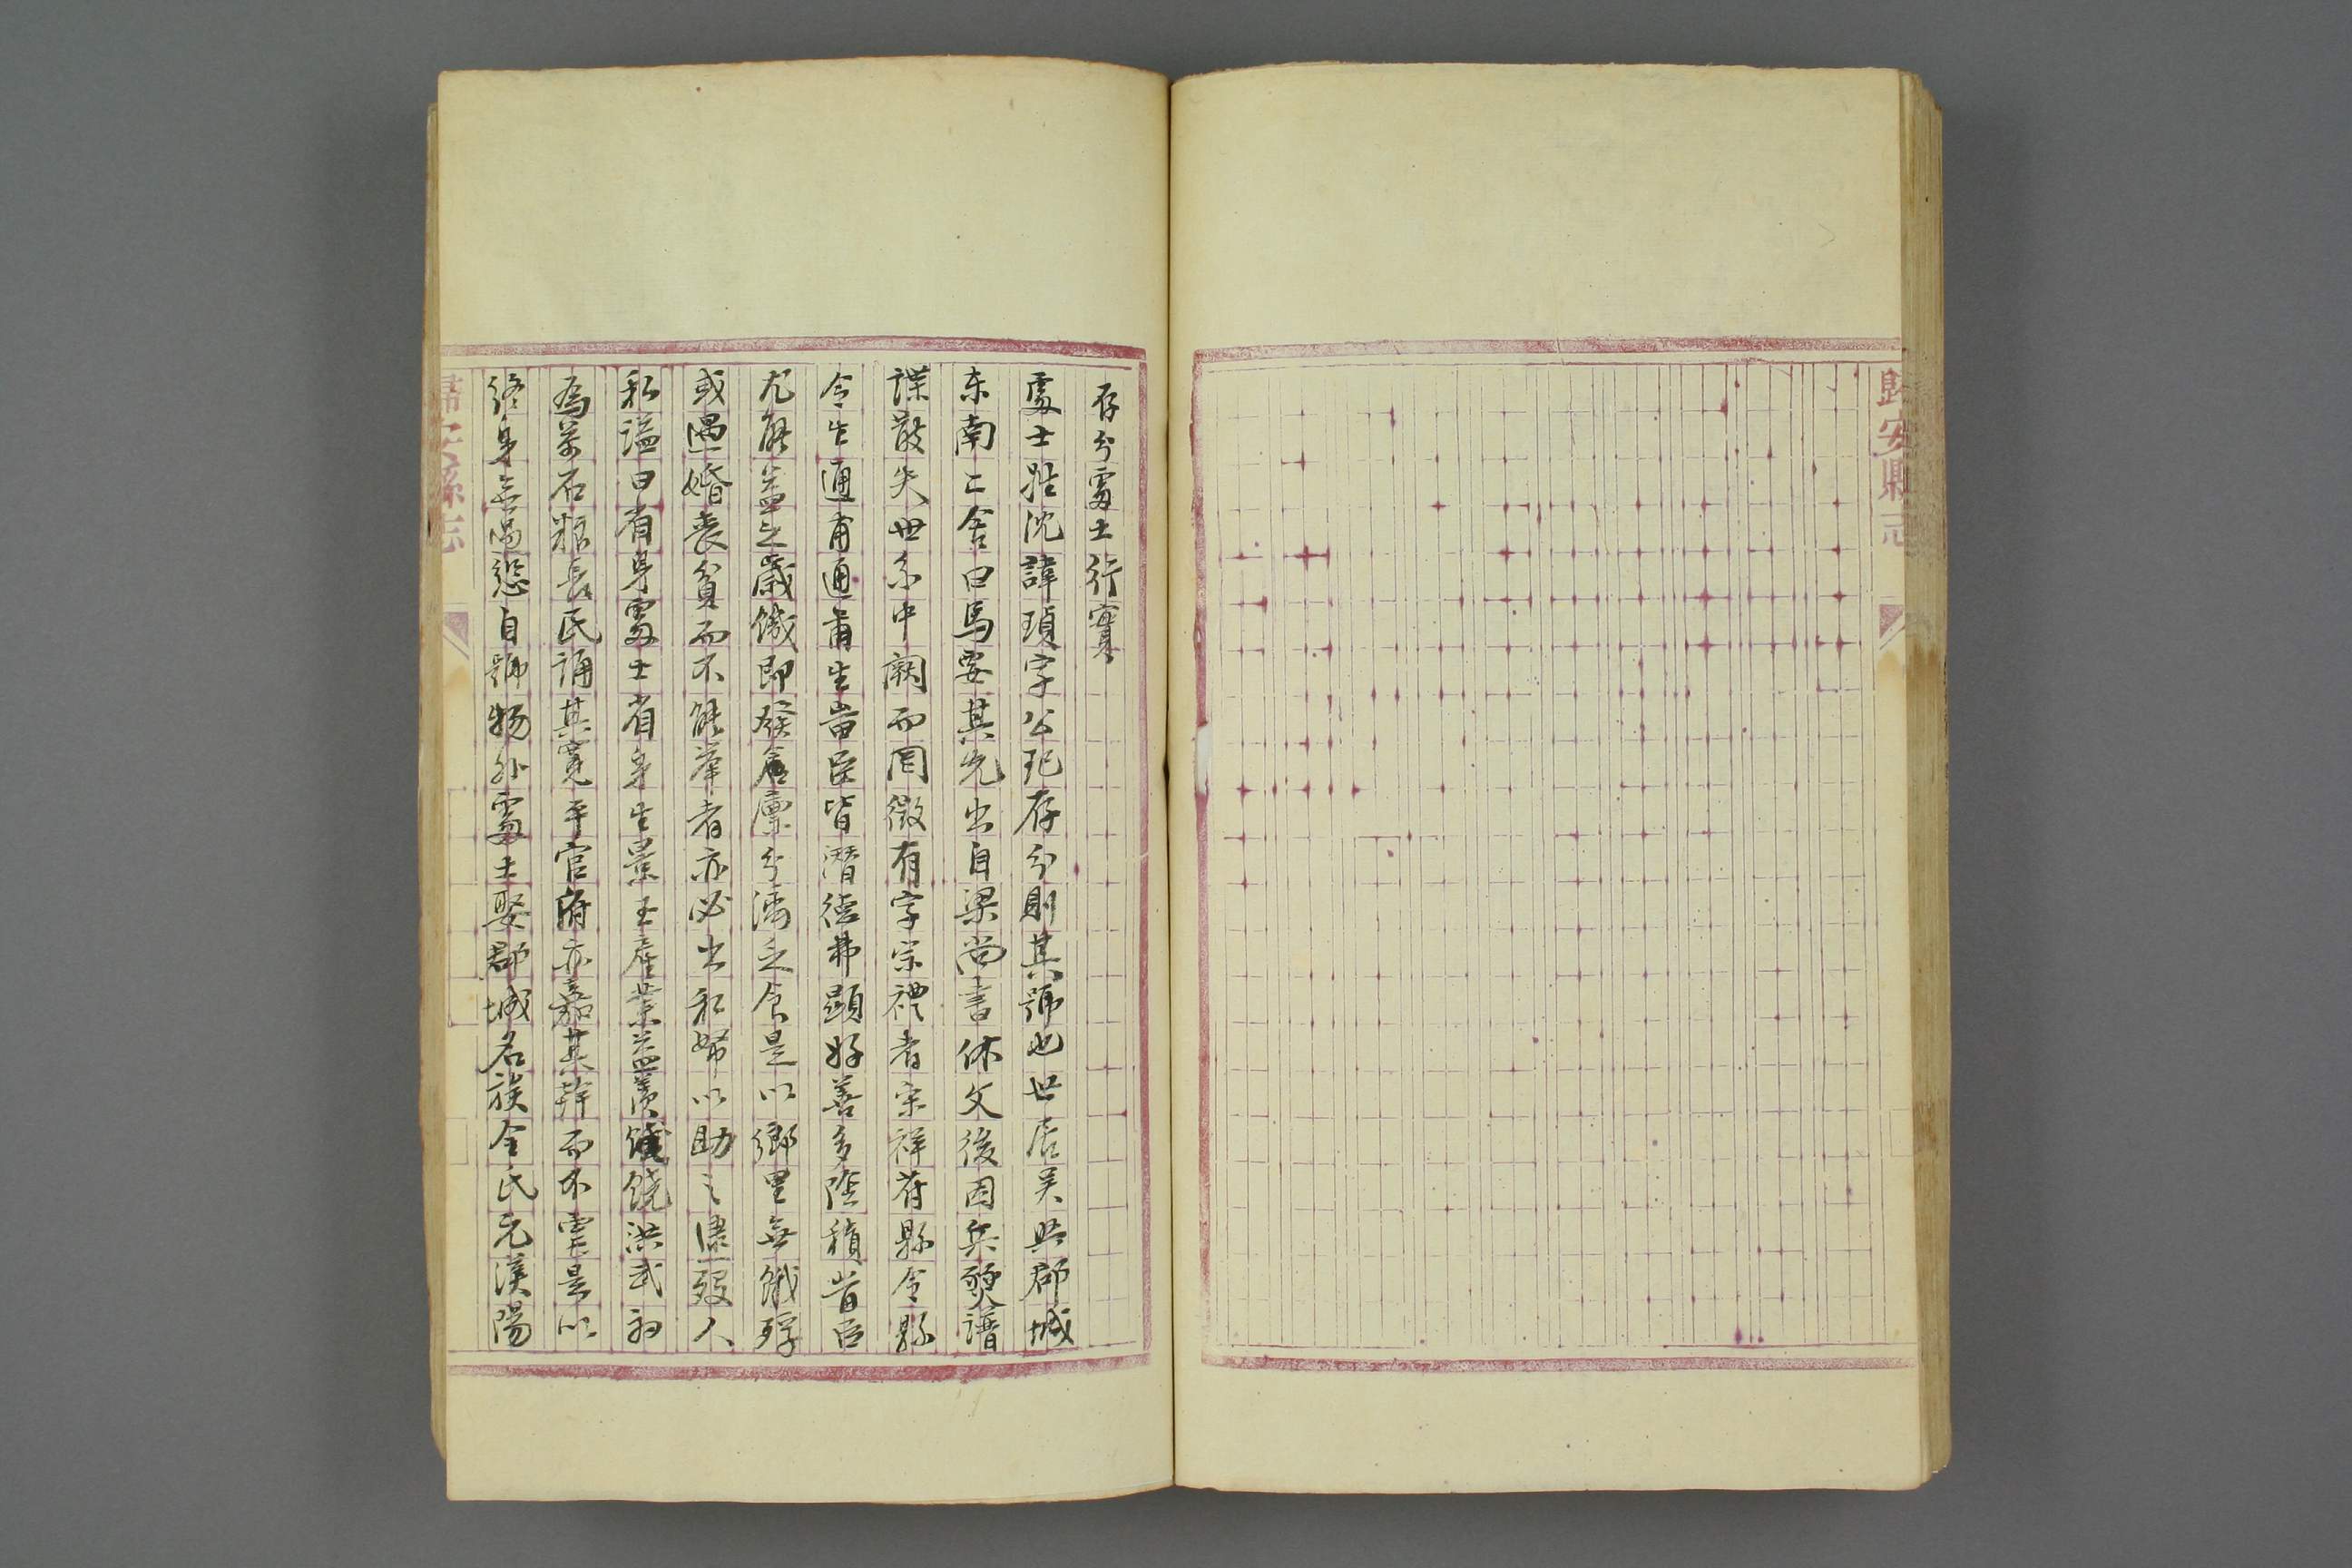 歸安縣志
存分處士行實
處士姓沈諱瑱字公玘存分則其號也世居吳興郡城
东南二舍曰馬要其先出自梁尚書休文後因兵燹譜
諜散失世系中闕而罔徵有字宗禮者宋祥符縣令縣
令生通甫通甫生畄臣皆潛德弗顯好善多隂積畄臣
尤能益之歲饑即發倉廩分濟之食是以鄉里無餓殍
或遇婚喪貧而不能举者亦必出私帑以助之濂歿人
私謚曰省身處士省身生景玉產業益羨饒洪武初
為萬石粮長民誦其寛平官府亦嘉其幹而不霊是以
終身無禍愆自號物外處士娶郡城名族金氏元漢陽
歸安縣志